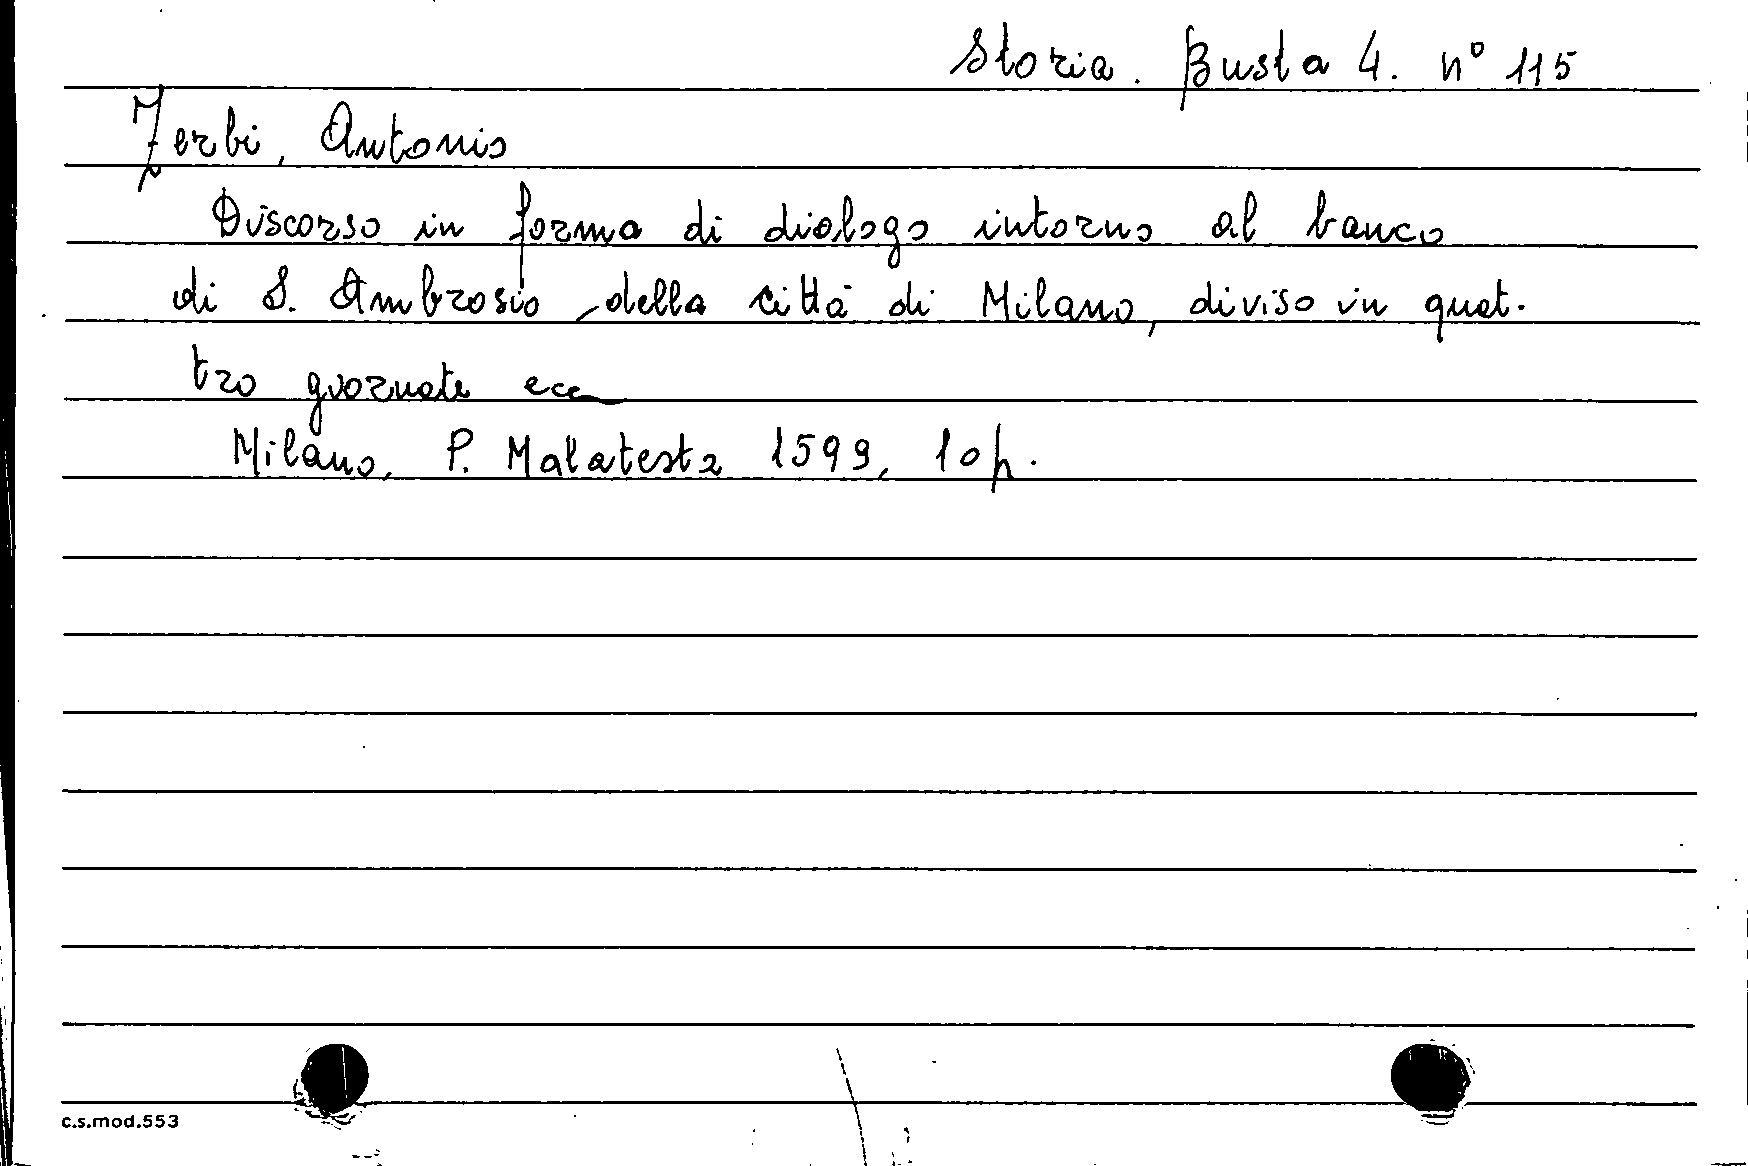 Storia. Busta 4. n° 115
Zerbi, Antonio
Discorso in forma di dialogo intorno al banco
di S. Ambrosio della città di Milano, diviso in quat-
tro giornate ecc
Milano, P. Malatesta 1599, 10 p.
c.s.mod.553